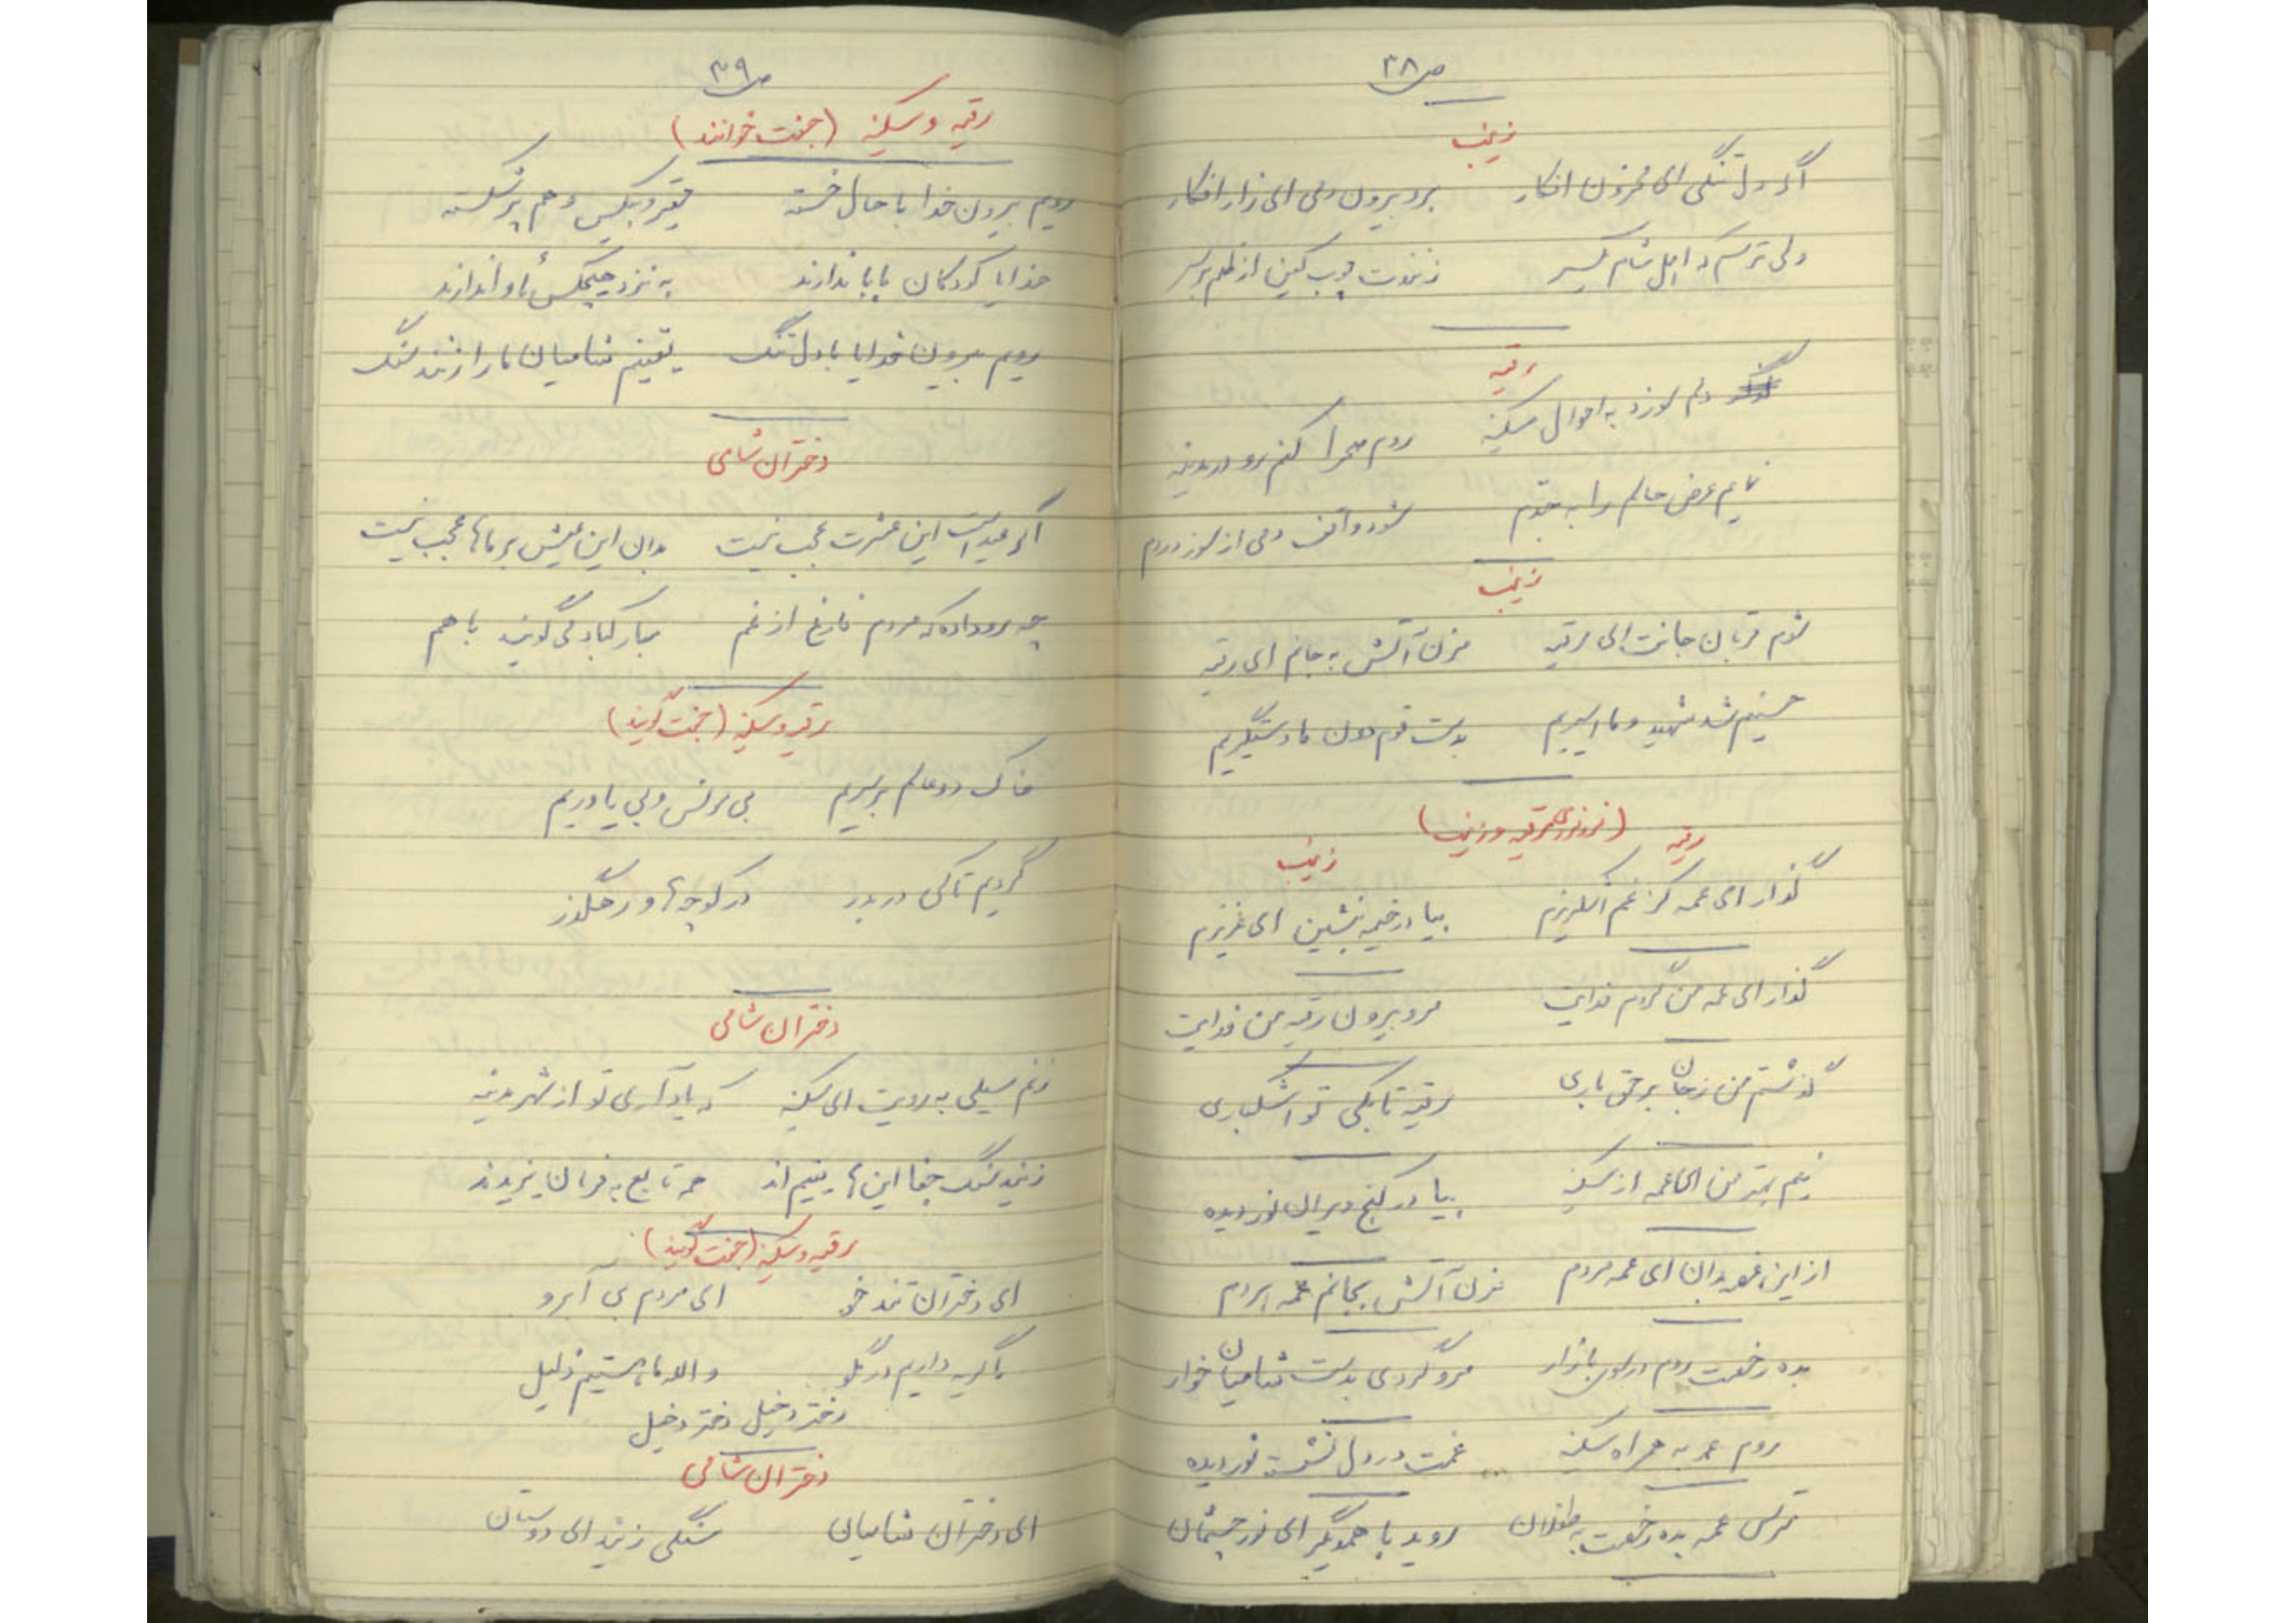 ص ۳۸
زینب
اگر دل تنگی ای محزون افکار برو بیرون دمی ای زار افکار
ولی ترسم که اهل شام یکسر زنندت چوب کین از ظلم بر سر
رقیه
دلم سوزد به احوال سکینه روم صحرا کنم رو در مدینه
نمایم عرض حالم را به جدم شود واقف دمی از سوز دردم
زینب
شوم قربان جانت ای رقیه مزن آتش به جانم ای رقیه
حسینم شد شهید و ما اسیریم بدست قوم دون ما دستگیریم
رقیه (فرد فرد رقیه و زینب) زینب
گذار ای عمه کز غم اشکریزم بیا در خیمه بنشین ای عزیزم
گذار ای عمه من گردم فدایت مرو بیرون رقیه من فدایت
گذشتم من ز جان بر حق باری رقیه تا بکی تو اشکباری
نیم بهتر من ای عمه از سکینه بیا در کنج ویران نور دیده
از این غصه بدان ای عمه مردم مزن آتش بجانم عمه مردم
بده رخصت روم در سوی بازار مرو گردی بدست شامیان خوار
روم عمه به همراه سکینه غمت در دل نشسته نور دیده
مترس عمه بده رخصت به طفلان روید با همدیگر ای نور چشمان
ص ۳۹
رقیه و سکینه (جفت خوانند)
رویم بیرون خدا با حال خسته فقیر و بیکس و هم پر شکسته
خدایا کودکان بابا ندارند به نزد هیچکس مأوا ندارند
رویم بیرون خدایا با دل تنگ یقینم شامیان ما را زنند سنگ
دختران شامی
اگر عید است این عشرت عجب نیست بدان این عیش بر ماها عجب نیست
چه رو داده که مردم فارغ از غم مبارکباد می گویند با هم
رقیه و سکینه (جفت گویند)
خاک دو عالم بر سریم بی مونس و بی یاوریم
گردیم تا کی در بدر در کوچه ها و رهگذر
دختران شامی
زنم سیلی به رویت ای سکینه که یاد آری تو از شهر مدینه
زنید سنگ جفا این ها یتیم اند همه تابع به فرمان یزیدند
رقیه و سکینه (جفت گویند)
ای دختران تندخو ای مردم بی آبرو
ما گریه داریم در گلو والله ما هستیم ذلیل
دختر دخیل دختر دخیل
دختران شامی
ای دختران شامیان سنگی زنید ای دوستان